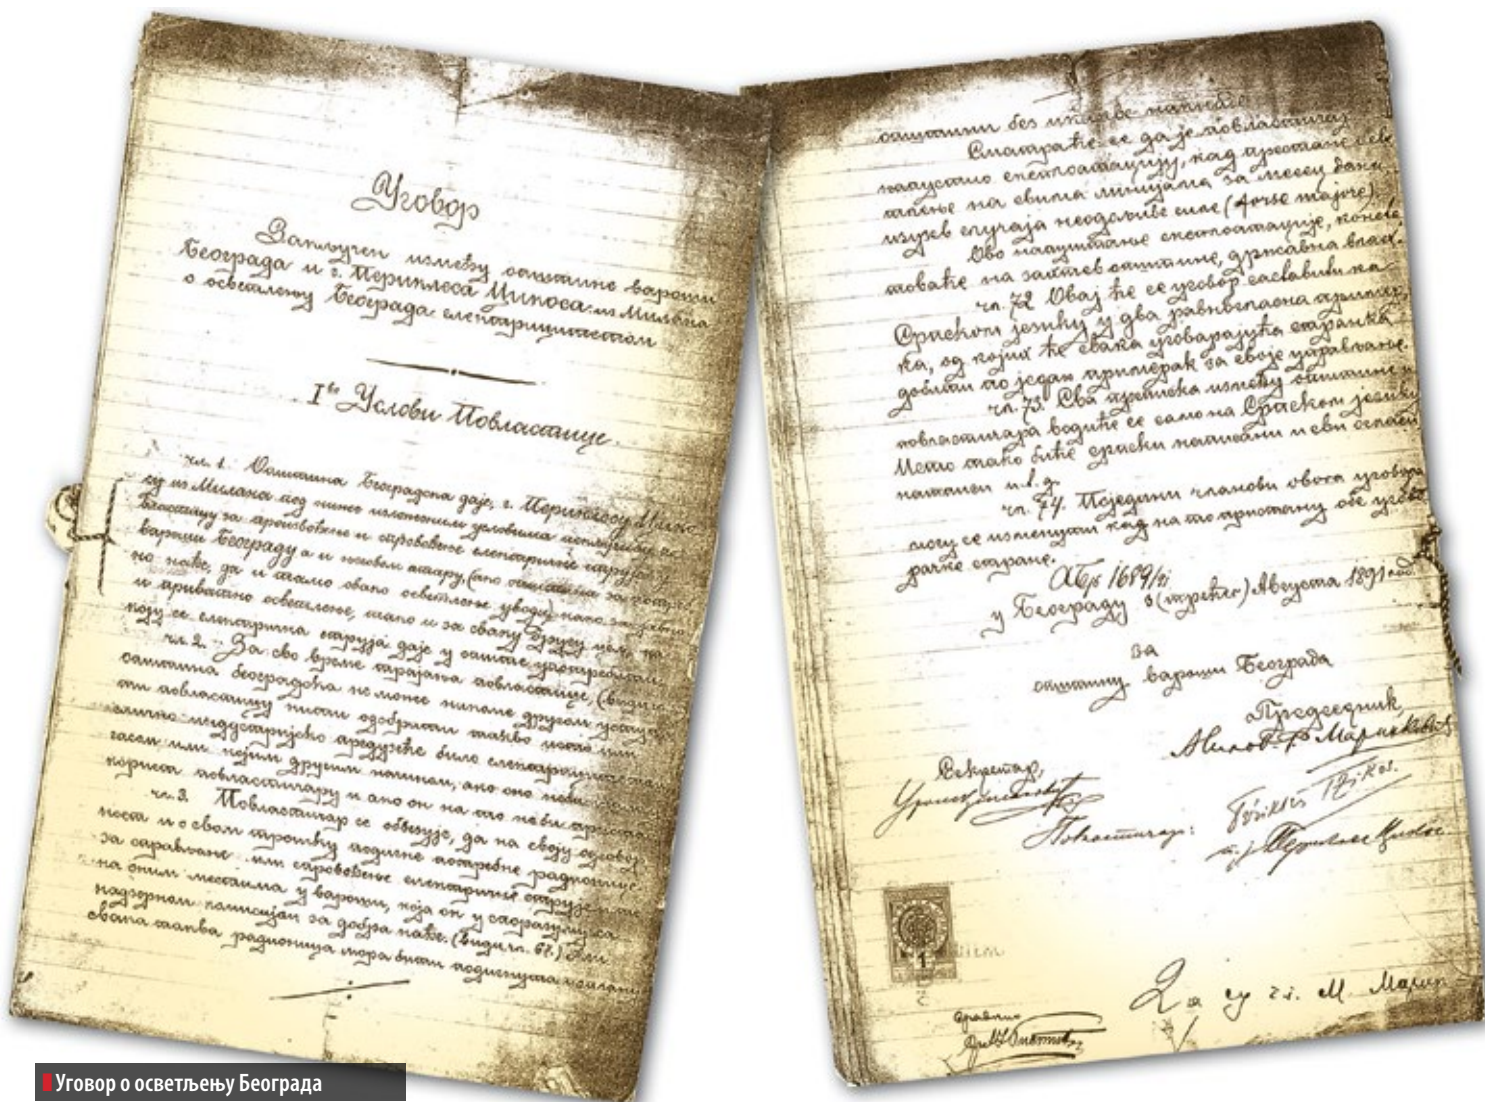 Уговор
Закључен између општине вароши
Београда и г. Периклеса Цикоса из Милана
о осветлењу Београда електрицитетом
I во Услови Повластице.
чл. 1. Општина Београдска даје, г. Периклесу Цико-
су из Милана под ниже изложеним условима
властицу за произвођење и спровођење електричне струје у
вароши Београду а и њеном атару, (ако општина за потреб
но нађе, да и тамо овако осветлење уводи) како за јавно
и приватно осветлење, тако и за сваку другу цељ, на
коју се електрична струја даје у опште употребити.
чл. 2. – За све време трајања повластице, (види чл.
општина београдска не може никоме другом уступи
ти повластицу нити одобрити какво исто или
слично индустријско предузеће било електрицитетом,
гасом или којим другим начином, ако оно
повластичару и ако он на то не би пристао.
чл. 3. Повластичар се обвезује, да на своју одговор
ност и о свом трошку подигне потребне радионице
за справљање или спровођење електричне струје
на оним местима у вароши, која он у споразуму са
надзорном комисијом за добра нађе. (види чл. 67.)
свака таква радионица мора бити подигнута
општини без икакве накнаде.
Сматраће се да је повластичар
напустио експлоатацију, кад престане осве
тлење на свима линијама за месец дана
изузев случаја неодољиве силе (forse majore).
Ово напуштање експлоатације,
товаће на захтев општине, државна власт.
чл. 72 Овај ће се уговор саставити на
Српском језику у два равногласна пример
ка, од којих ће свака уговарајућа странка
добити по један примерак за своје управљање.
чл. 73. Сва преписка између општине и
повластичара водиће се само на Српском језику
Исто тако биће српски написани и сви огласи,
натписи и.т.д.
чл. 74. Поједини чланови овога уговора
могу се изменути кад на то пристану обе угова
рачке стране.
АБр 1689/91
у Београду 3 (трећег) Августа 1891 год.
за
општину вароши Београда
Председник,
Милов. Р. Маринковић
Секретар,
Повластичар:
Périklès Tzikos.
т.ј. Периклес Цикос
1
Да су г.г. М. Марин
Уговор о осветљењу Београда